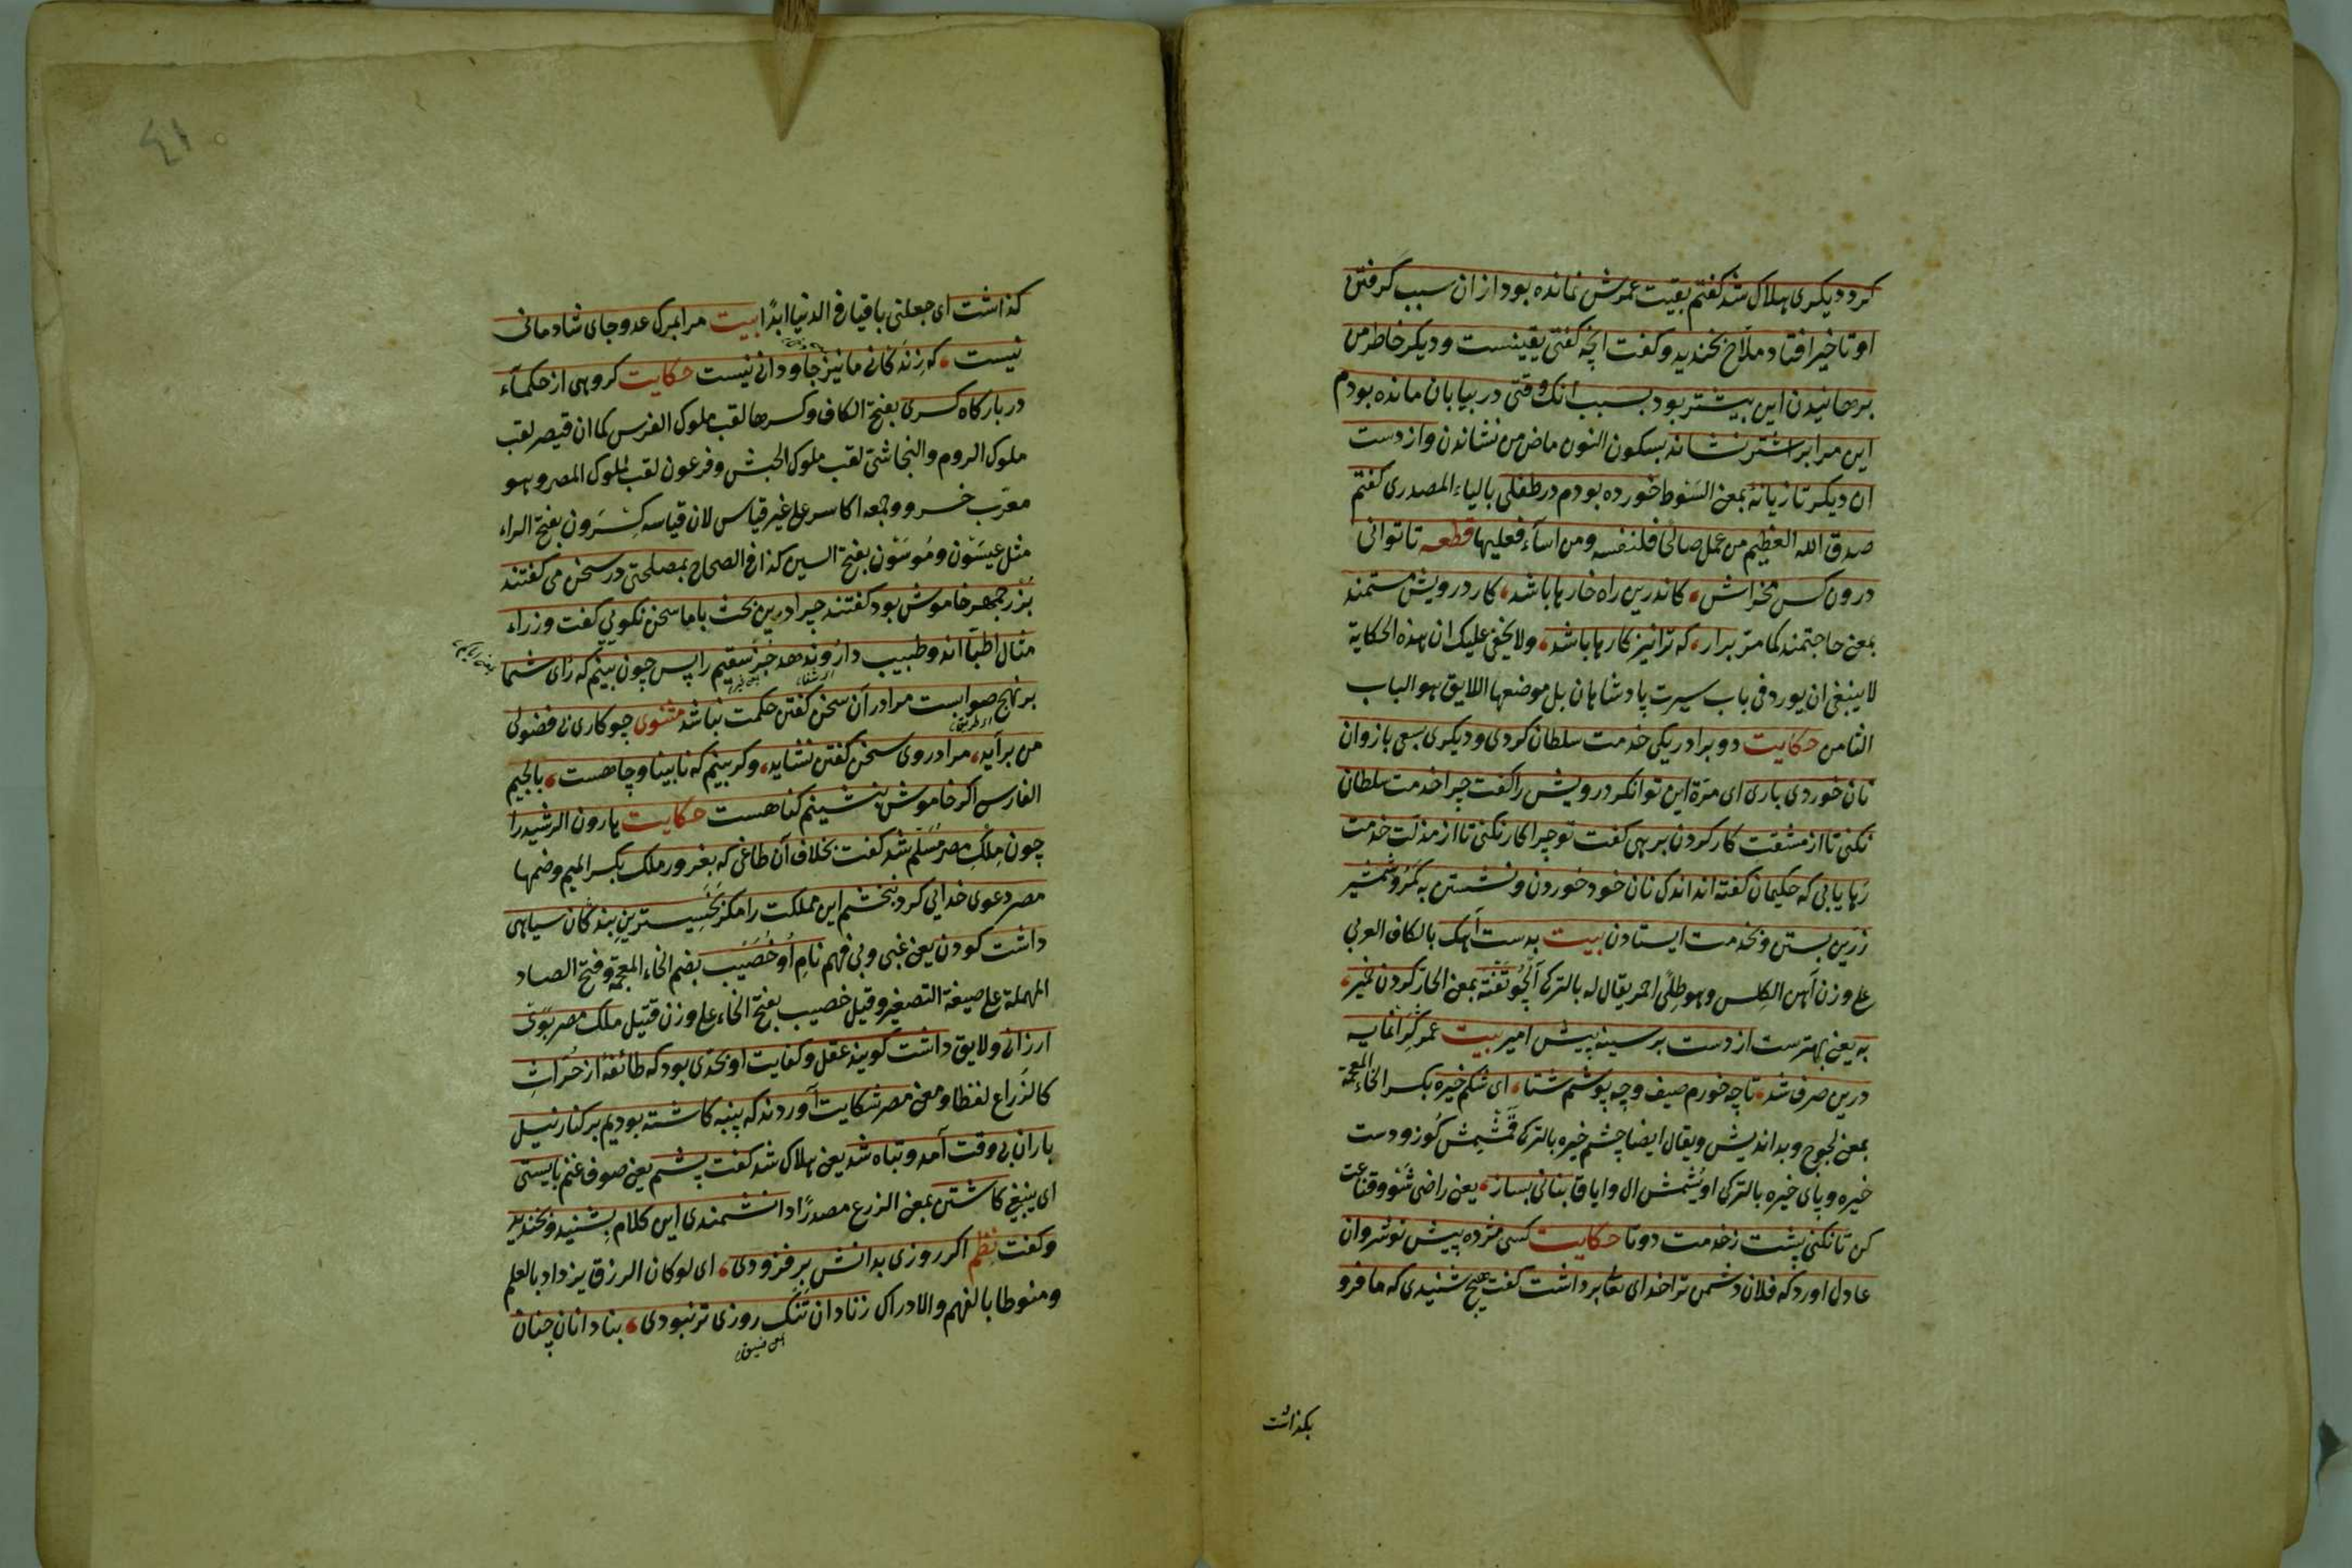 کرد دیکری هلاک شد کفتم بقیت عمرش نمانده بود از ان سبب کرفتن
او تاخیر افتاد ملاح بخندید وکفت انچه کفتی یقینست و دیکر خاطر من
برهانیدن این بیشتر بود بسبب انک وقتی در بیابان مانده بودم
این مرا بر اشتر نشاند بسکون النون ماض من نشاندن واز دست
ان دیکر تازیانه بمعنی السوط خورده بودم در طفلی بالیاء المصدری کفتم
صدق الله العظیم من عمل صالحا فلنفسه ومن اسآء فعلیها قطعه تا توانی
درون کس مخراش، کاندرین راه خارها باشد، کار درویش مستمند
بمعنی حاجتمند کما مر برار، که ترا نیز کارها باشد، ولا یخفی علیک ان هذه الحکایة
لا ینبغی ان یورد فی باب سیرت پادشاهان بل موضعها اللایق هو الباب
الثامن حکایت دو برادر یکی خدمت سلطان کردی و دیکری بسعی بازوان
نان خوردی باری ای مرة این توانکر درویش را کفت چرا خدمت سلطان
نکنی تا از مشقت کار کردن برهی کفت تو چرا کار نکنی تا از مذلت خدمت
رهایابی که حکیمان کفته اند اندک نان خود خوردن ونشستن به کمر وشمشیر
زرین بستن وبخدمت ایستادن بیت بدست آهک بالکاف العربی
علی وزن آهن الکلس وهو طلی احمر یقال له بالترکی آلچو تفته بمعنی الحار کردن خمیر،
به یعنی بهترست از دست بر سینه پیش امیر بیت عمر کرانمایه
درین صرف شد، تا چه خورم صیف وچه پوشم شتا، ای شکم خیره بکسر الخاء المعجمة
بمعنی لجوج وبداندیش ویقال ایضا چشم خیره بالترکی قمشمش کوز ودست
خیره وپای خیره بالترکی اویشمش ال وایاق بنانی بساز، یعنی راضی شو وقناعت
کن تا نکنی پشت زخدمت دوتا حکایت کسی مژده پیش نوشروان
عادل اورد که فلان دشمن ترا خدای تعا برداشت کفت هیچ شنیدی که ما فرو
بکذاشت
٤١
کذاشت ای جعلنی باقیا فی الدنیا ابدًا بیت مرا بمرک عدو جای شادمانی
نیست، که زندکانی ما نیز جاودانی نیست حکایت کروهی از حکمآء
در بارکاه کسری بفتح الکاف وکسرها لقب ملوک الفرس کما ان قیصر لقب
ملوک الروم والنجاشی لقب ملوک الحبش وفرعون لقب لملوک المصر وهو
معرب خسرو وجمعه اکاسر علی غیر قیاس لان قیاسه کسرون بفتح الراء
مثل عیسون وموسون بفتح السین کذا فی الصحاح بمصلحتی در سخن می کفتند
بزرجمهر خاموش بود کفتند چرا درین بحث با ما سخن نکویی کفت وزراء
مثال اطبا اند وطبیب دارو ندهد جز سقیم را پس چون بینم که رای شما
بر نهج صوابست مرا در آن سخن کفتن حکمت نباشد مثنوی چو کاری بی فضولی
من برآید، مرا در وی سخن کفتن نشاید، وکر بینم که نابینا وچاهست، بالجیم
الفارس اکر خاموش بنشینم کناهست حکایت هارون الرشید را
چون ملک مصر مسلم شد کفت بخلاف آن طاغی که بغرور ملک بکسر المیم وضمها
مصر دعوی خدایی کرد نبخشم این مملکت را مکر بخسیسترین بندکان سیاهی
داشت کودن یعنی غبی وبی فهم نام او خصیب بضم الخاء المعجمة وفتح الصاد
المهملة علی صیغة التصغیر وقیل خصیب بفتح الخاء علی وزن قتیل ملک مصر بوی
ارزانی ولایق داشت کویند عقل وکفایت او بحدی بود که طائفه از حراث
کالزراع لفظا ومعنی مصر شکایت آوردند که پنبه کاشته بودیم بر کنار نیل
باران بی وقت آمد وتباه شد یعنی هلاک شد کفت پشم یعنی صوف غنم بایستی
ای ینبغی کاشتن بمعنی الزرع مصدرًا دانشمندی این کلام بشنید وبخندید
وکفت نظم اکر روزی بدانش بر فزودی، ای لو کان الرزق یزداد بالعلم
ومنوطا بالفهم والادراک زنادان تنک روزی تر نبودی، بنادانان چنان